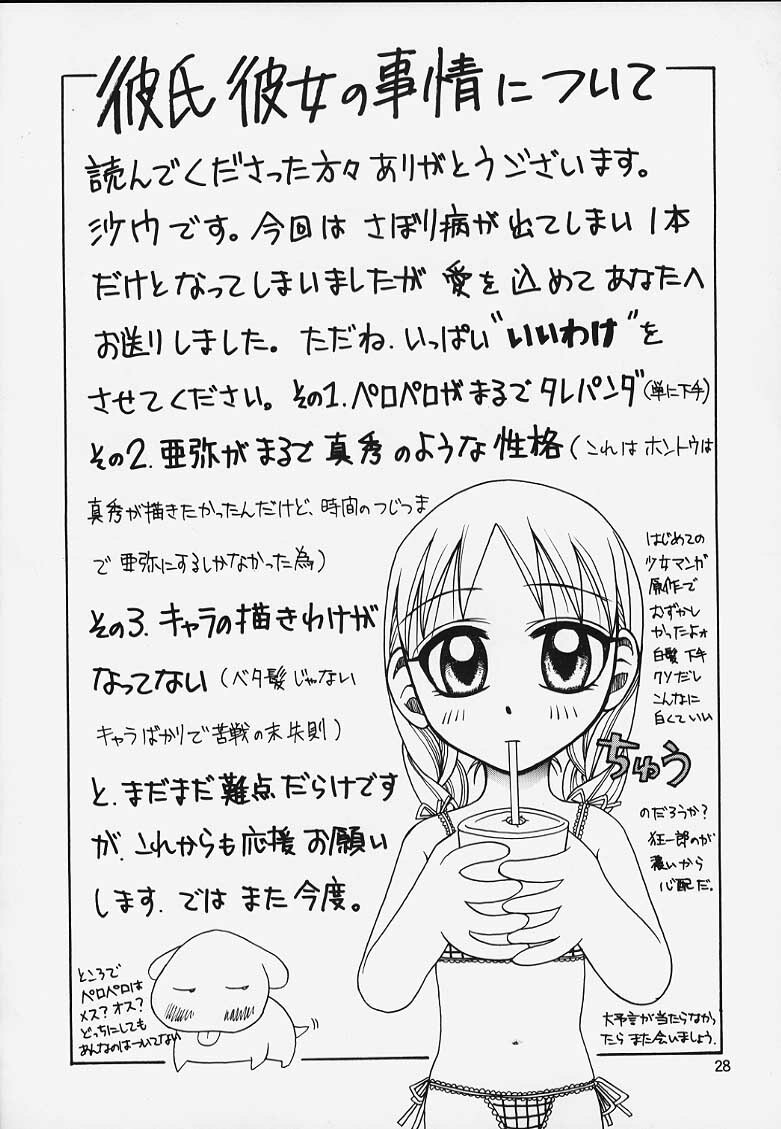 彼氏彼女の事情について
読んでくださった方々ありがとうございます。
沙ウです。今回は さぼり病が出てしまい 1本
だけとなってしまいましたが 愛を込めてあなたへ
お送りしました。ただね、いっぱい“いいわけ”を
させてください。その1.ペロペロがまるでタレパンダ(単に下手)
その2.亜弥がまるで真秀のような性格(これはホントウは
真秀が描きたかったんだけど、時間のつじつま
で亜弥にするしかなかった為)
その3.キャラの描きわけが
なってない(ベタ髪じゃない
キャラばかりで苦戦の末失則)
と、まだまだ難点だらけです
が、これからも応援お願い
します。ではまた今度。
はじめての
少女マンガ
原作で
むずかし
かったよォ
白髪 下手
クソだし
こんなに
白くていい
ちゅう
のだろうか?
狂一郎のが
濃いから
心配だ。
ところで
ペロペロは
メス?オス?
どっちにしても
あんなのはついてない
大予言が当たらなかっ
たら また会いましょう.
28